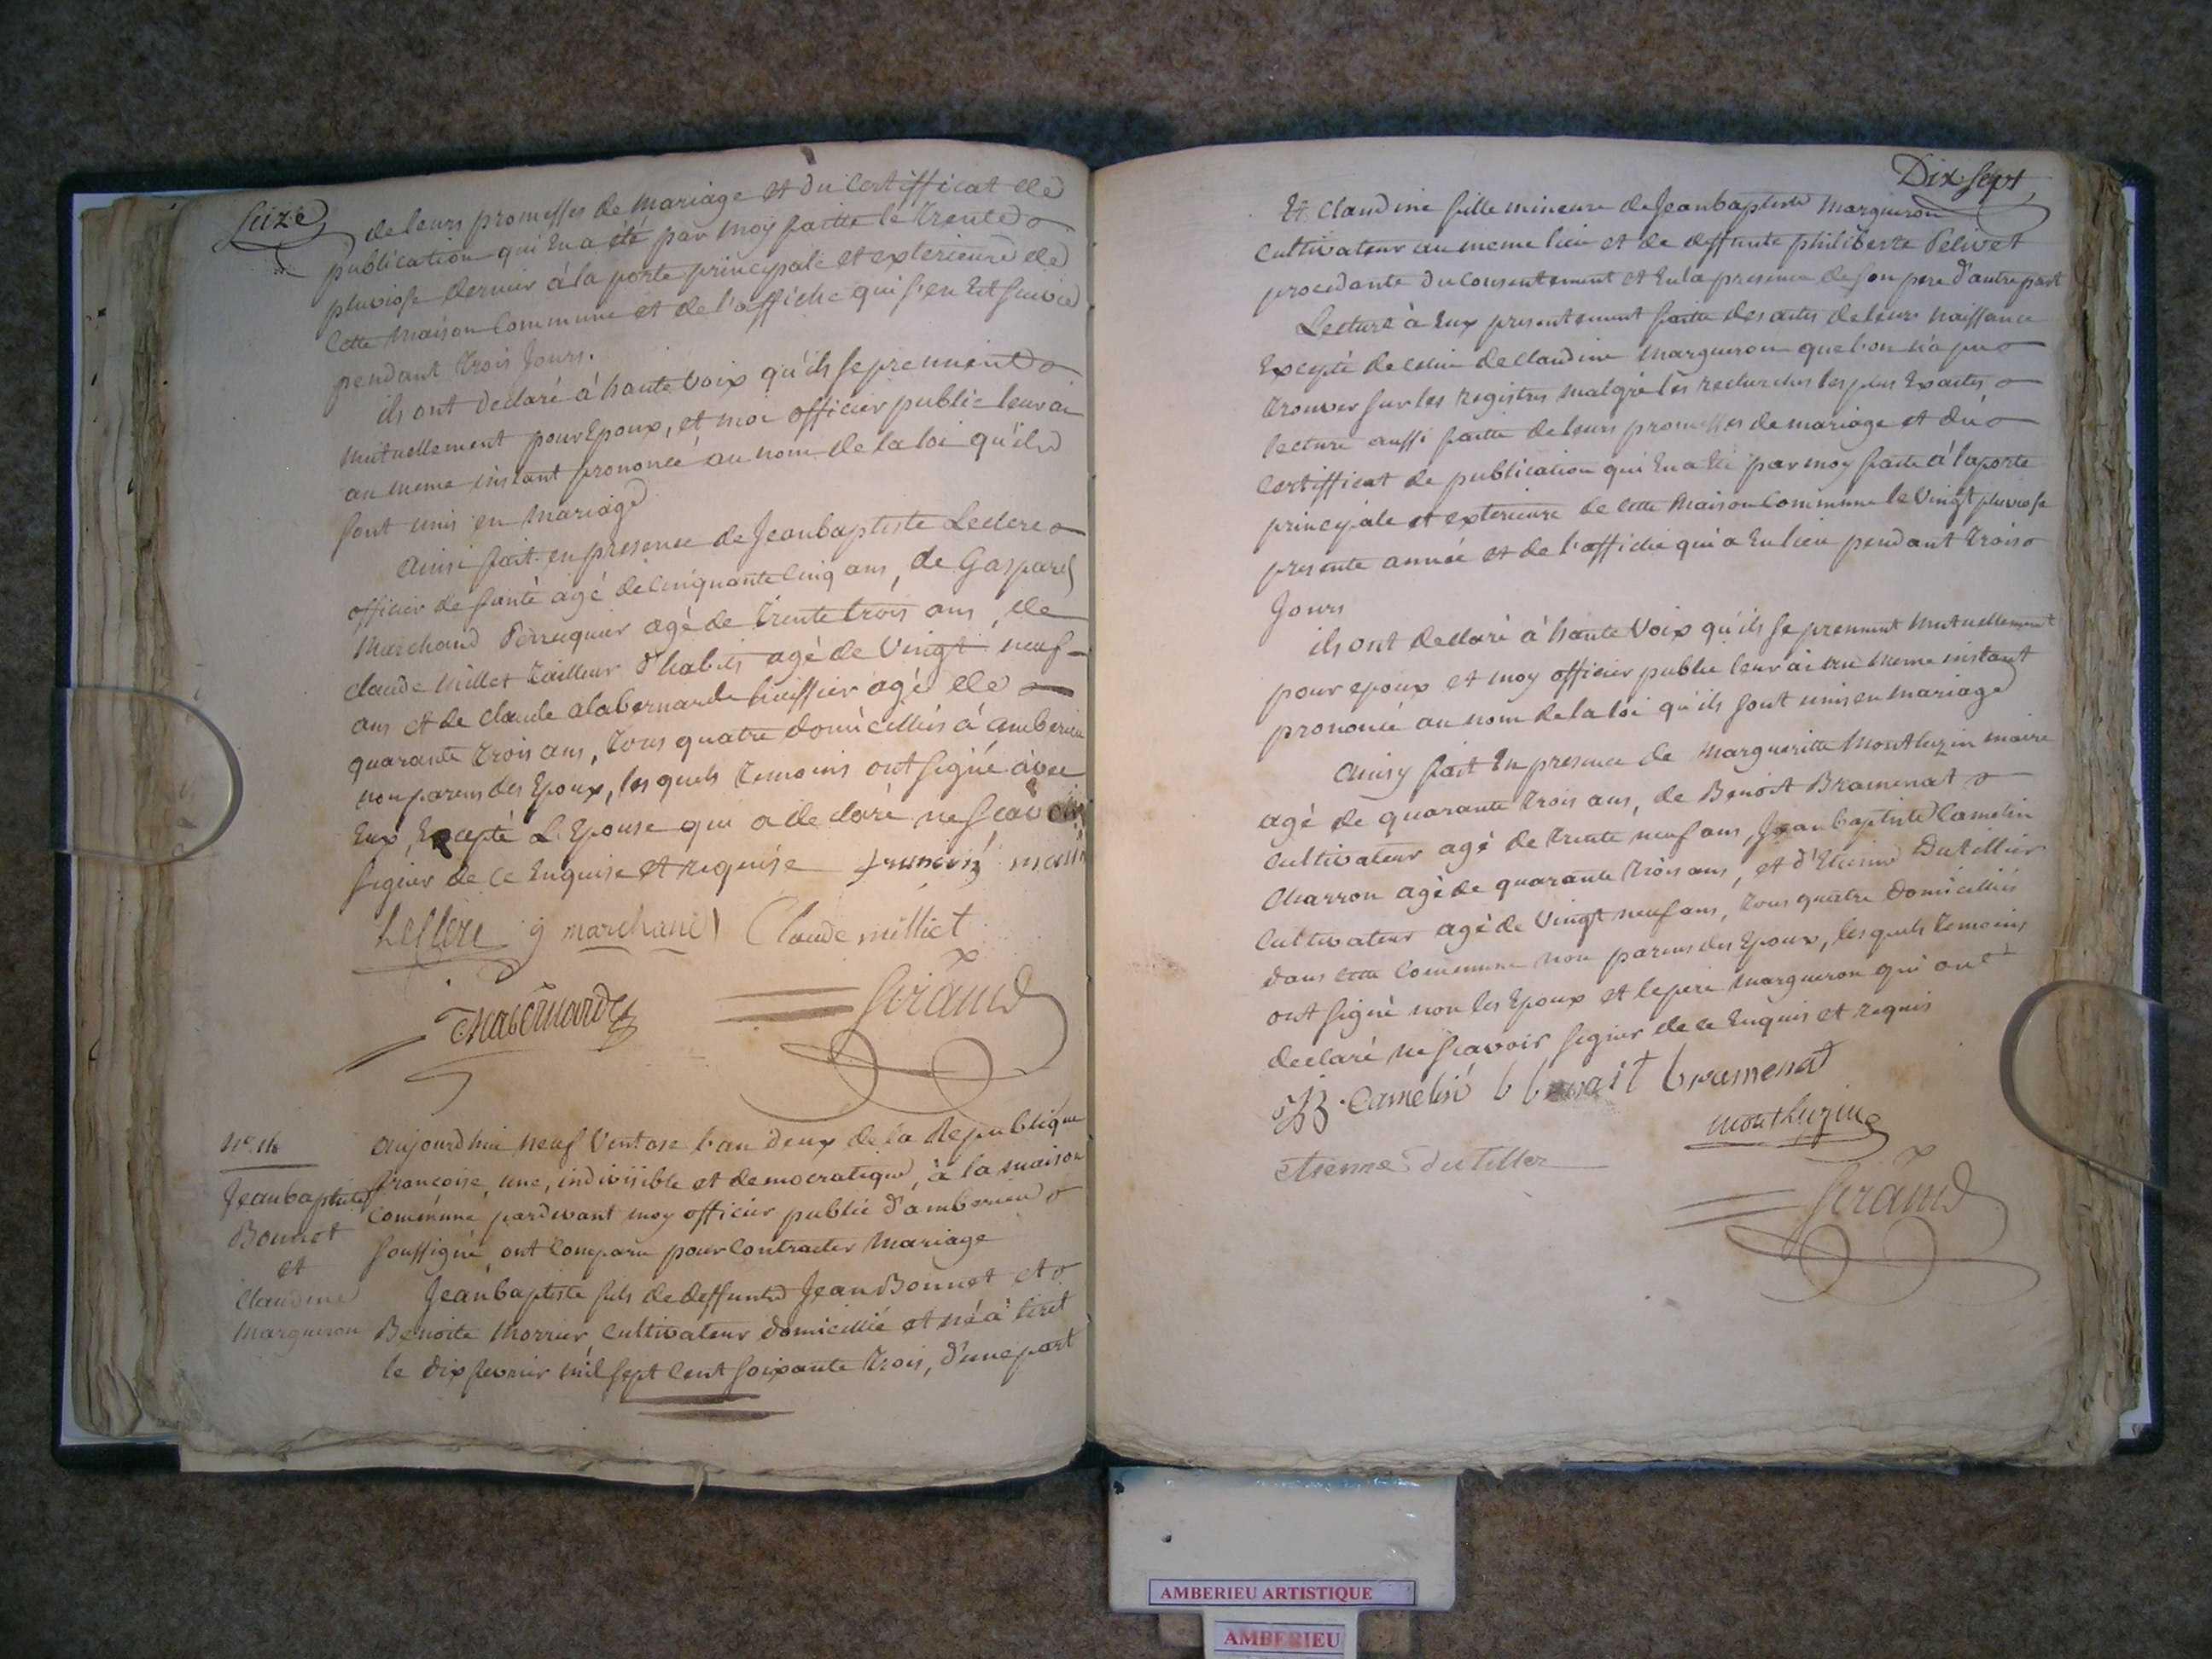 Seize
de leurs promesses de mariage et du certifficat de
publication qui en a été par moy faitte le trente
pluviose dernier à la porte principale et exterieure de
cette maison commune et de l'affiche qui s'en est suivie
pendant trois jours.
ils ont declaré à haute voix qu'ils se prennent
mutuellement pour Epoux, et moi officier public leur ai
au meme instant prononcé au nom de la loi qu'ils
sont unis en mariage
Ainsi fait en presence de Jeanbaptiste Leclerc
officier de santé agé de cinquante cinq ans, de Gaspard
Marchand Perruquier agé de trente trois ans, de
claude millet tailleur d'habits agé de vingt neuf
ans et de claude alabernarde huissier agé de
quarante trois ans, tous quatre domicilliés à amberieu
non parens des Epoux, les quels temoins ont signé avec
Eux, Excepté L'Epouse qui a declaré ne scavoir
signer de ce Enquise et requise
Leclerc g marchand Claude milliet
Giraud
Jeanbaptiste
Bonnet
et
Claudine
Margueron
Aujourdhui neuf Ventose l'an deux de la Republique
francoise, une, indivisible et democratique, à la maison
commune pardevant moy officier public d'amberieu
soussigné, ont comparu pour contracter mariage
Jeanbaptiste fils de deffunts Jean Bonnet et
Benoite Morrier, cultivateur domicillié et né à tiret
le dix fevrier mil sept cent soixante trois, d'une part
Dix sept
Et Claudine fille mineure de Jeanbaptiste Margueron
cultivateur au meme lieu et de deffunte philiberte Pelivet
procedante du consentement et en la presence de son pere d'autre part
Lecture à Eux presentement faitte des actes de leurs naissance
Excepté de celui de claudine Margueron que l'on n'a pu
trouver sur les registres malgré les recherches les plus Exactes
lecture aussi faitte de leurs promesses de mariage et du
certifficat de publication qui en a été par moy faite à la porte
principale et exterieure de cette maison commune le vingt pluviose
presente année et de l'affiche qui a eu lieu pendant trois
Jours
ils ont declaré à haute voix qu'ils se prennent mutuellement
pour epoux et moy officier public leur ai au meme instant
prononcé au nom de la loi qu'ils sont unis en mariage
Ainsy fait En presence de Margueritte Monthuzin maire
agé de quarante trois ans, de Benoit Bramenat
cultivateur agé de trente neuf ans, Jeanbaptiste Camelin
Charron agé de quarante trois ans, et d'Etienne Dutillier
Cultivateur agé de vingt neuf ans, tous quatre domicilliés
dans cette commune non parens des Epoux, les quels temoins
ont signé non les Epoux et le pere Margueron qui ont
declaré ne scavoir signer de ce Enquis et requis
JB. Camelin b benoit bramenat
monthuzin
etienne dutiller
Giraud
AMBERIEU ARTISTIQUE
AMBERIEU